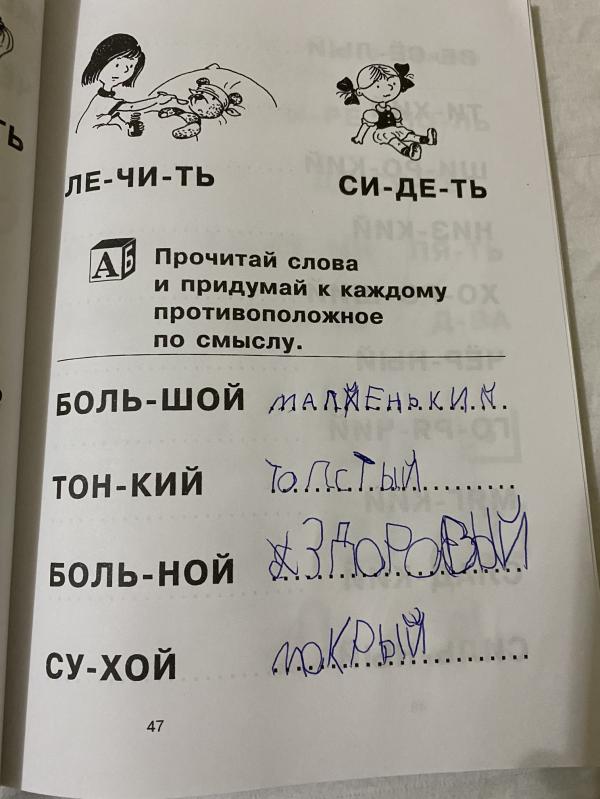 ЛЕ-ЧИ-ТЬ СИ-ДЕ-ТЬ
АБ Прочитай слова
и придумай к каждому
противоположное
по смыслу.
БОЛЬ-ШОЙ маленький
ТОН-КИЙ толстый
БОЛЬ-НОЙ ЗДОРОВЫЙ
СУ-ХОЙ мокрый
47